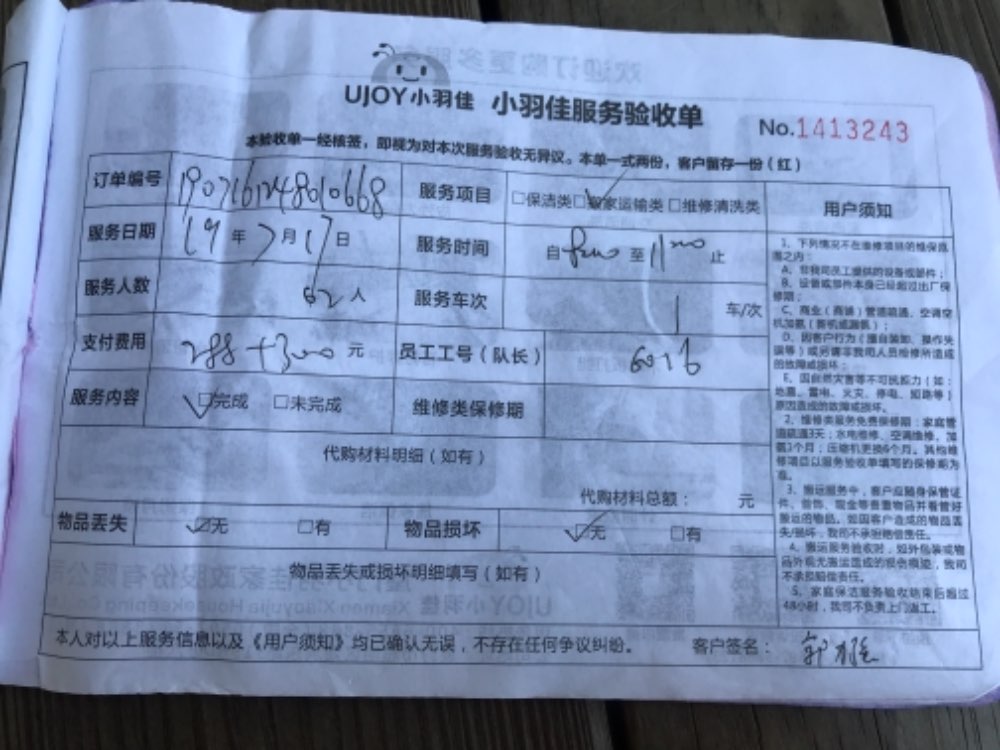 UJOY小羽佳 小羽佳服务验收单
No.1413243
本验收单一经核签，即视为对本次服务验收无异议。本单一式两份，客户留存一份（红）
订单编号 1907161248010668 服务项目 □保洁类 □搬家运输类 □维修清洗类
服务日期 19年7月17日 服务时间 自 至 止
服务人数 2人 服务车次 1 车/次
支付费用 288+300元 员工工号（队长） 6026
服务内容 □完成 □未完成 维修类保修期
代购材料明细（如有）
代购材料总额： 元
物品丢失 □无 □有 物品损坏 □无 □有
物品丢失或损坏明细填写（如有）
用户须知
1、下列情况不在维修项目的维保范围之内：
A、非我司员工提供的设备或部件；
B、设备或部件本身已经超过出厂保修期；
C、商业（商铺）管道疏通、空调空机加氨（新机或漏氨）；
D、因客户行为（擅自装卸、操作失误等）或另请非我司人员检修所造成的故障或损坏；
E、因自然灾害等不可抗能力（如：地震、雷电、火灾、停电、短路等）原因造成的故障或损坏。
2、维修类服务免费保修期：家庭管道疏通3天；水电维修、空调维修、加氨3个月；压缩机更换6个月。其他维修项目以服务验收单填写的保修期为准。
3、搬运服务中，客户应随身保管证件、首饰、现金等贵重物品并看管好搬运的物品。如因客户造成的物品丢失/损坏，我司不承担赔偿责任。
4、搬运服务验收时，如外包装或物品外观无搬运造成的损伤痕迹，我司不承担赔偿责任。
5、家庭保洁服务验收结束后超过48小时，我司不负责上门返工。
本人对以上服务信息以及《用户须知》均已确认无误，不存在任何争议纠纷。 客户签名：郭雅